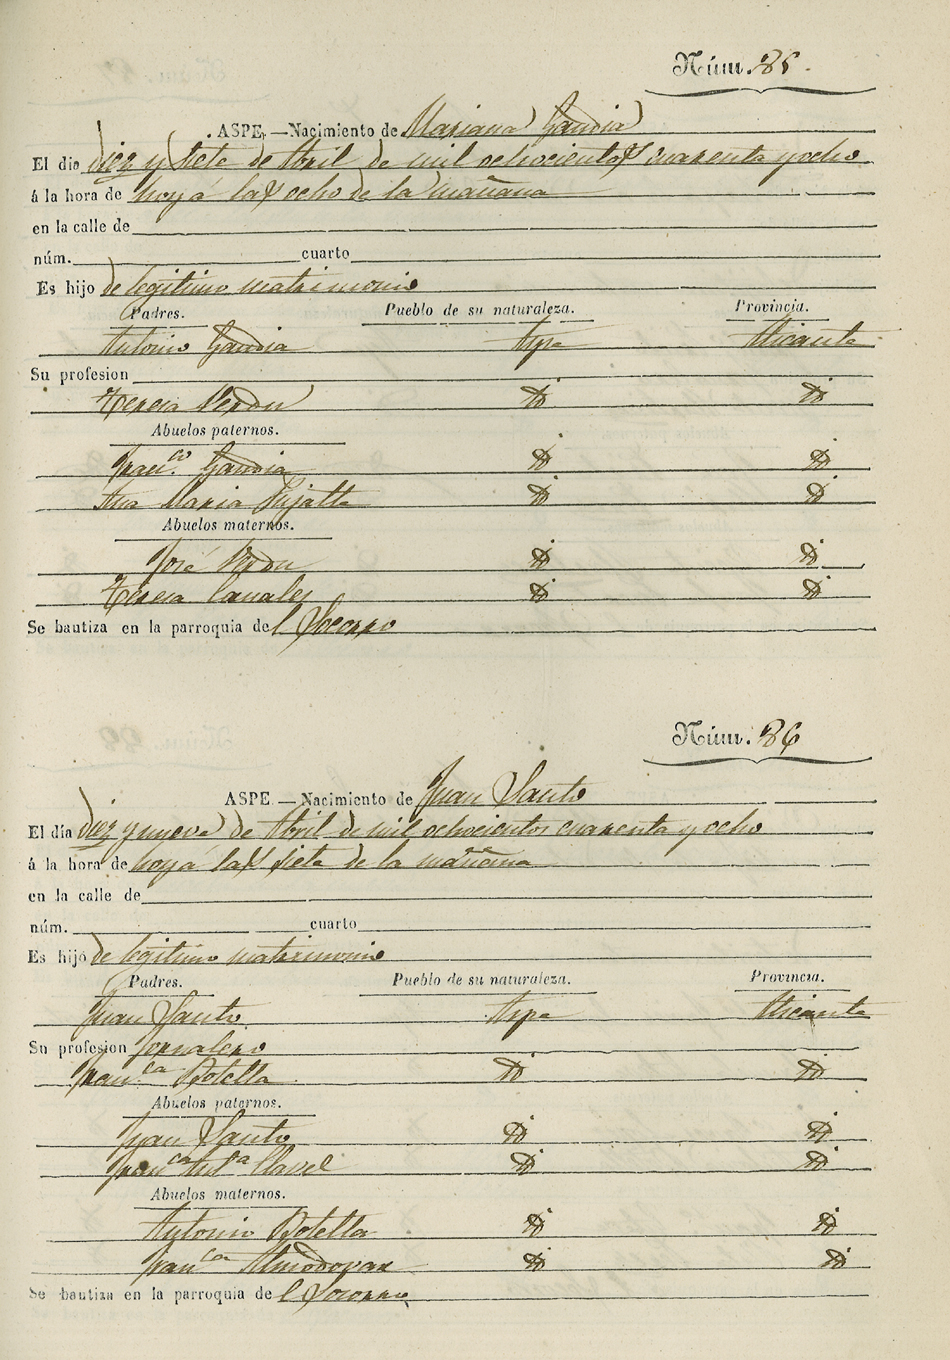 Núm. 85.
ASPE.—Nacimiento de Mariana Gandia
El día diez y siete de Abril de mil ochocientos cuarenta y ocho
á la hora de hoy á las ocho de la mañana
en la calle de
núm. cuarto
Es hijo de legitimo matrimonio
Padres. Pueblo de su naturaleza. Provincia.
Antonio Gandia Aspe Alicante
Su profesion
Teresa Verdu id id
Abuelos paternos.
Fran.co Gandia id id
Ana Maria Pujalte id id
Abuelos maternos.
José Verdu id id
Teresa Canales id id
Se bautiza en la parroquia del Socorro
Núm. 86
ASPE.—Nacimiento de Juan Santo
El día diez y nueve de Abril de mil ochocientos cuarenta y ocho
á la hora de hoy á las siete de la mañana
en la calle de
núm. cuarto
Es hijo de legitimo matrimonio
Padres. Pueblo de su naturaleza. Provincia.
Juan Santo Aspe Alicante
Su profesion Jornalero
Fran.ca Botella id id
Abuelos paternos.
Juan Santo id id
Fran.ca Ant.a Clavel id id
Abuelos maternos.
Antonio Botella id id
Fran.ca Almodovar id id
Se bautiza en la parroquia del Socorro